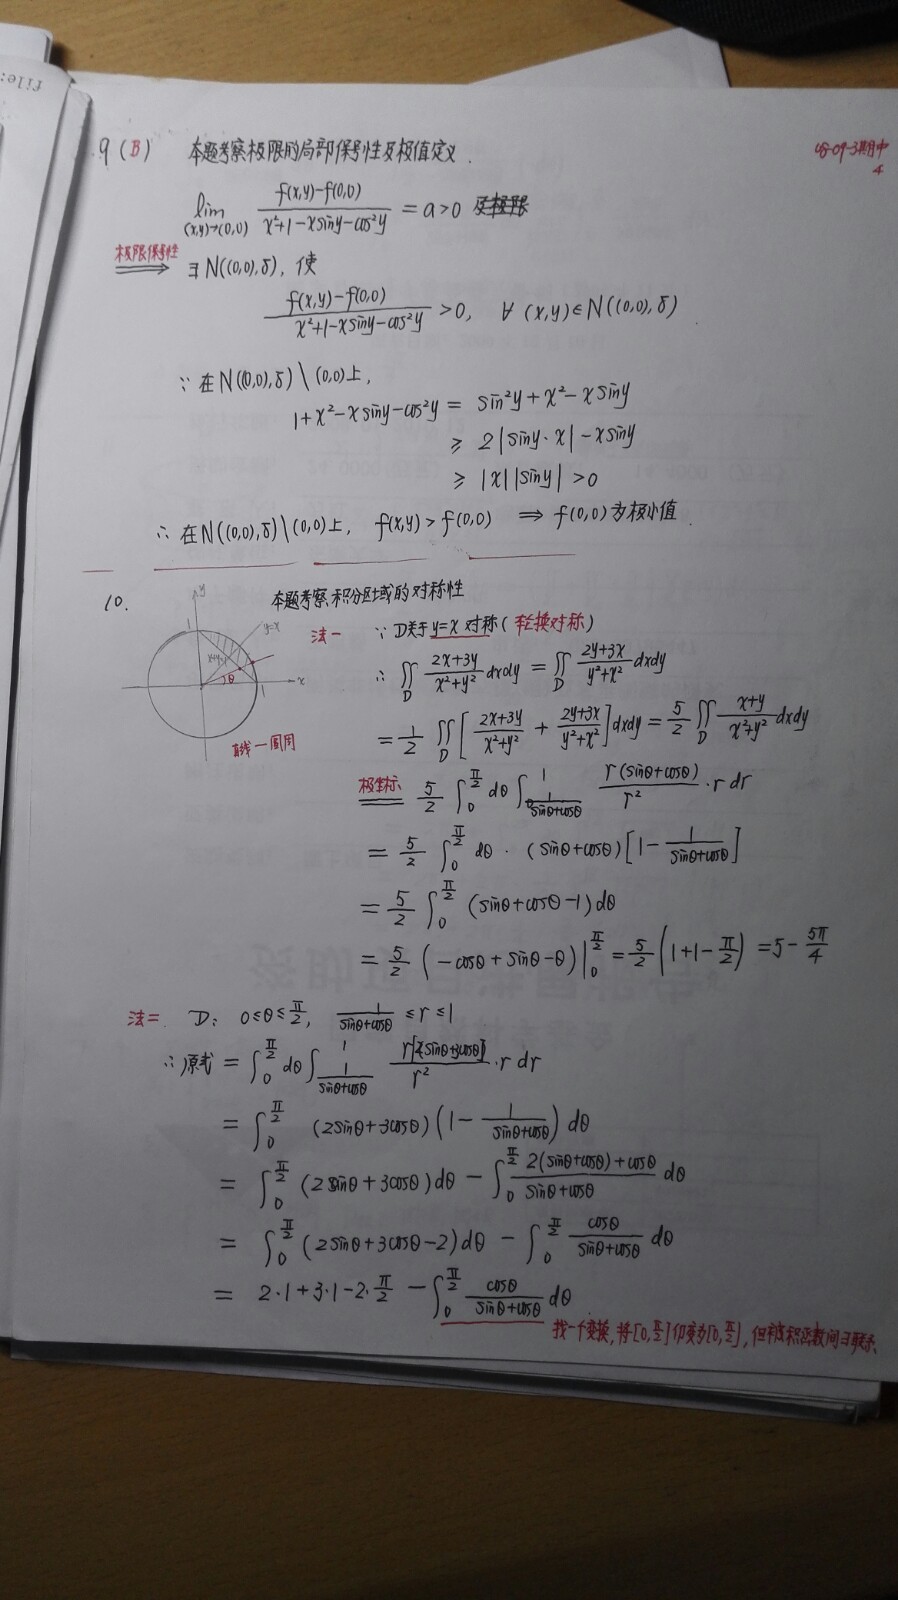 file:
9 (B) 本题考察极限的局部保号性及极值定义.
08-09-3期中
4
lim_{(x,y)→(0,0)} \frac{f(x,y)-f(0,0)}{x²+1-xsiny-cos²y} = a>0
极限保号性
⟹ ∃ N((0,0),δ), 使
\frac{f(x,y)-f(0,0)}{x²+1-xsiny-cos²y} >0, ∀ (x,y)∈N((0,0),δ)
∵ 在N((0,0),δ) \ (0,0)上,
1+x²-xsiny-cos²y = sin²y+x²-xsiny
≥ 2|siny·x|-xsiny
≥ |x||siny| >0
∴ 在N((0,0),δ)\(0,0)上, f(x,y)>f(0,0) ⟹ f(0,0)为极小值.
10. 本题考察积分区域的对称性
y
1
y=x
x+y=1
θ
1
x
直线→圆周
法一 ∵ D关于y=x对称(轮换对称)
∴ ∬_D \frac{2x+3y}{x²+y²} dxdy = ∬_D \frac{2y+3x}{y²+x²} dxdy
= \frac{1}{2} ∬_D [\frac{2x+3y}{x²+y²} + \frac{2y+3x}{y²+x²}] dxdy = \frac{5}{2} ∬_D \frac{x+y}{x²+y²} dxdy
极坐标 \frac{5}{2} ∫_0^{\frac{π}{2}} dθ ∫_{\frac{1}{sinθ+cosθ}}^1 \frac{r(sinθ+cosθ)}{r²} · r dr
= \frac{5}{2} ∫_0^{\frac{π}{2}} dθ · (sinθ+cosθ)[1-\frac{1}{sinθ+cosθ}]
= \frac{5}{2} ∫_0^{\frac{π}{2}} (sinθ+cosθ-1)dθ
= \frac{5}{2} (-cosθ+sinθ-θ)|_0^{\frac{π}{2}} = \frac{5}{2} (1+1-\frac{π}{2}) = 5-\frac{5π}{4}
法二 D: 0≤θ≤\frac{π}{2}, \frac{1}{sinθ+cosθ} ≤r≤1
∴ 原式 = ∫_0^{\frac{π}{2}} dθ ∫_{\frac{1}{sinθ+cosθ}}^1 \frac{r[2sinθ+3cosθ]}{r²} · r dr
= ∫_0^{\frac{π}{2}} (2sinθ+3cosθ)(1-\frac{1}{sinθ+cosθ}) dθ
= ∫_0^{\frac{π}{2}} (2sinθ+3cosθ)dθ - ∫_0^{\frac{π}{2}} \frac{2(sinθ+cosθ)+cosθ}{sinθ+cosθ} dθ
= ∫_0^{\frac{π}{2}} (2sinθ+3cosθ-2)dθ - ∫_0^{\frac{π}{2}} \frac{cosθ}{sinθ+cosθ} dθ
= 2·1+3·1-2·\frac{π}{2} - ∫_0^{\frac{π}{2}} \frac{cosθ}{sinθ+cosθ} dθ
找一个变换, 将[0,\frac{π}{2}]仍变为[0,\frac{π}{2}], 但被积函数间∃联系.